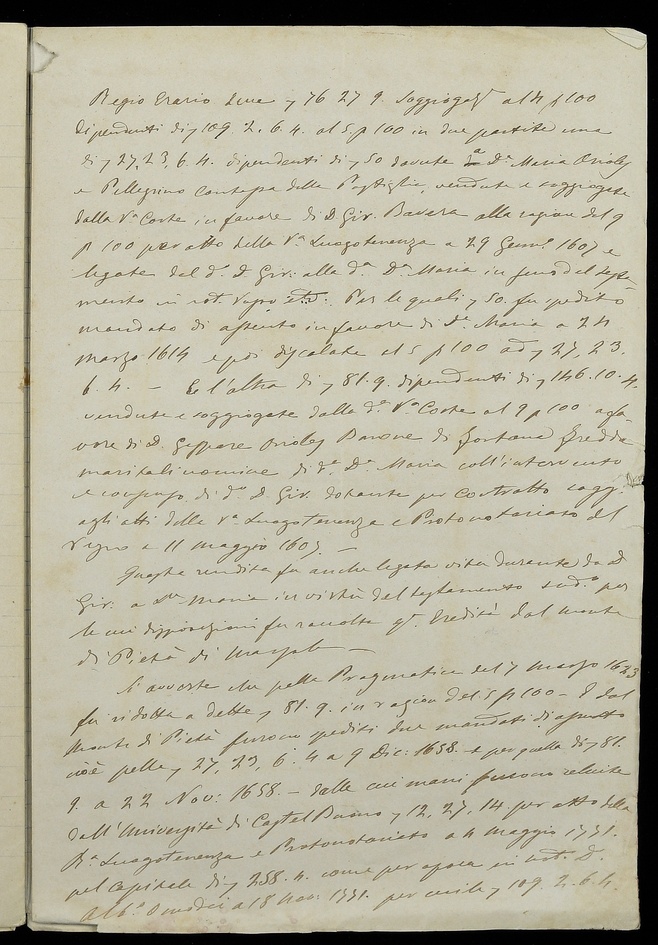 Regio Erario deve 7 76 27 9. Soggiogaz.e al 4 p 100
dipendenti di 7 109. 2. 6. 4. al 5 p 100 in due partite una
di 7 27, 23, 6. 4. dipendenti di 7 50 dovute a D.a Maria
e Pellegrino della vendute e soggiogate
dalla R.a Corte in favore di D. Gir. alla ragion del 9
p 100 per atto della R.a Luogotenenza a 29 Genn.o 1607 e
legate dal d.o D. Gir: alla d.a D.a Maria in
mento in not. Per le quali 7 50. fu spedito
mandato di assento in favore di d.a Maria a 24
marzo 1614 e poi discalate al 5 p 100 ad 7 27, 23.
6. 4. – E l'altra di 7 81. 9. dipendenti di 7 146. 10. 4.
vendute e soggiogate dalla d.a R.a Corte al 9 p 100 a fa
vore di D. Barone di Fontana Fredda
maritali nomine di d.a D.a Maria coll'intervento
e di d.o D. Gir. dotante per contratto
agli atti della R.a Luogotenenza e Protonotariato del
Regno a 11 maggio 1607. –
Questa rendita fu anche legata vita durante da D.
Gir: a D.a Maria in virtù del testamento sud.o per
le cui disposizioni fu raccolta q.a Eredità dal monte
di Pietà di –
Si avverte che pella Pragmatica del 7 marzo 1623
fu ridotta a dette 7 81. 9. in ragion del 5 p 100 – E dal
Monte di Pietà furono spediti due mandati di assento
cioè pelle 7 27, 23, 6. 4 a 9 Dic: 1658. e per quella di 7 81.
9. a 22 Nov: 1658. – dalle cui mani furono
dall'Università di Castel Buono 7 12, 27, 14. per atto della
R.a Luogotenenza e Protonotariato a 4 maggio 1771.
pel Capitale di 7 258. 4. come per apoca in not. D.
a 18 Nov: 1771. per cui le 7 109. 2. 6. 4.